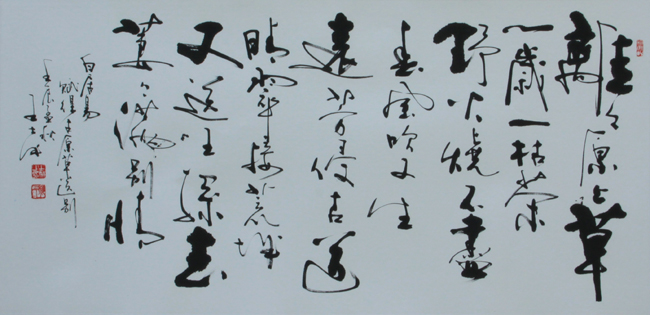 離々原上草
一歲一枯榮
野火燒不盡
春風吹又生
遠芳侵古道
晴翠接荒城
又送王孫去
萋々滿別情
白居易
賦得古原草送別